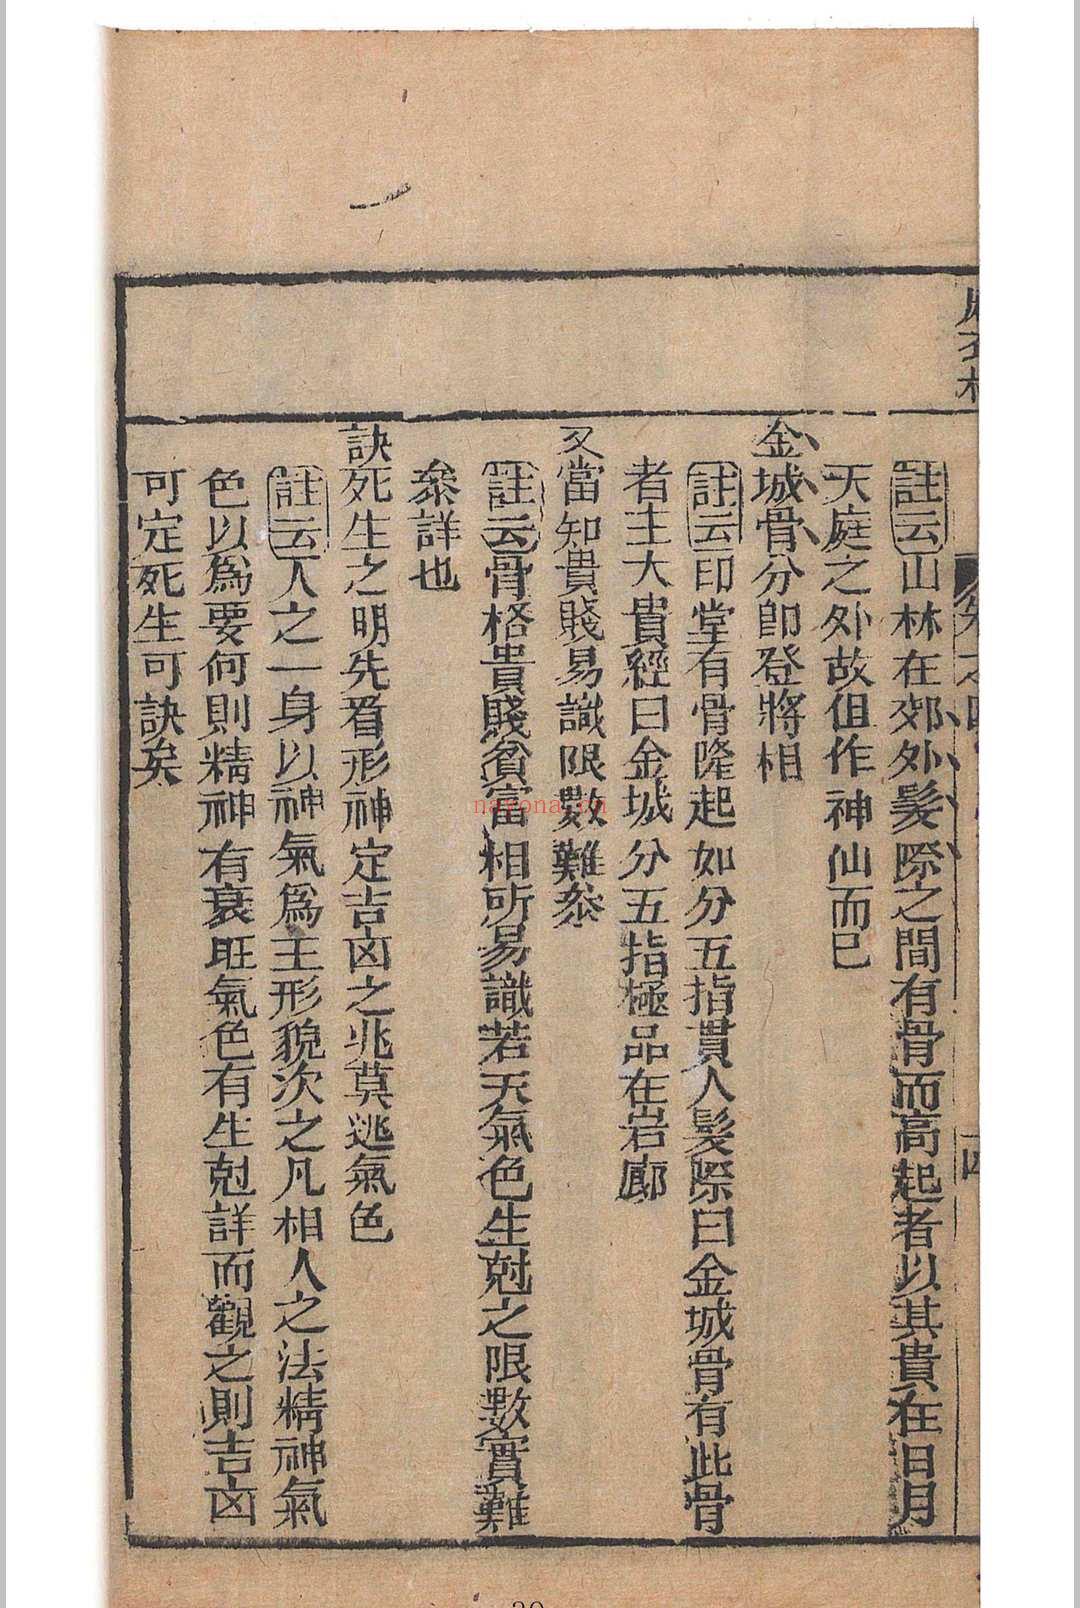 註云山林在郊外髮際之間有骨而高起者以其貴在日月
天庭之外故但作神仙而已
金城骨分卽登將相
註云印堂有骨隆起如分五指貫人髮際曰金城骨有此骨
者主大貴經曰金城分五指極品在岩廊
又當知貴賤易識限數難叅
註云骨格貴賤貧富相所易識若天氣色生尅之限數實難
叅詳也
訣死生之明先看形神定吉凶之兆莫逃氣色
註云人之一身以神氣爲主形貌次之凡相人之法精神氣
色以爲要何則精神有衰旺氣色有生尅詳而觀之則吉凶
可定死生可訣矣
nayona.cn